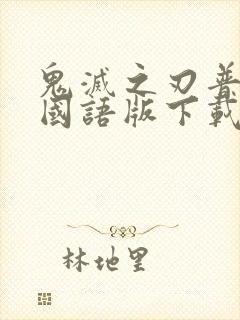 鬼滅之刃普
國語版下載
林地里